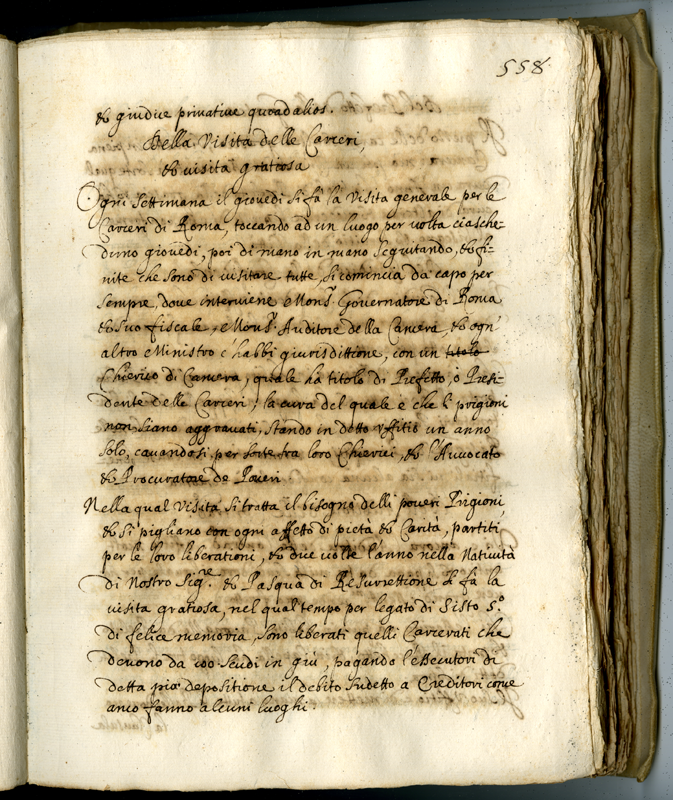 558.
& giudice privative quoad alios.
Della Visita delle Carceri,
& visita gratiosa
Ogni settimana il giovedì si fà la visita generale per le
Carceri di Roma, toccando ad un luogo per volta ciasche-
duno giovedì, poi di mano in mano seguitando, & fi-
nite che sono di visitare tutte, si comincia da capo per
sempre, dove interviene Monsr. Governatore di Roma
& suo fiscale, Monsr. Auditore della Camera, & ogn'
altro Ministro c'habbi giurisdittione, con un titolo
Chierico di Camera, quale ha titolo di Prefetto, ò Presi-
dente delle Carceri, la cura del quale è che li prigioni
non siano aggravati, stando in detto uffitio un anno
solo, cavandosi per sorte fra loro Chierici, & l'Avvocato
& Procuratore de Poveri
Nella qual Visita si tratta il bisogno delli poveri Prigioni,
& si pigliano con ogni affetto di pietà & Carità, partiti
per le loro liberationi, & due volte l'anno nella Natività
di Nostro Sigre. & Pasqua di Resurrettione si fà la
visita gratiosa, nel qual tempo per legato di Sisto 5º.
di felice memoria, sono liberati quelli Carcerati che
devono da 100 scudi in giù, pagando l'essecutori di
detta pia depositione il debito sudetto a Creditori come
anco fanno alcuni luoghi.